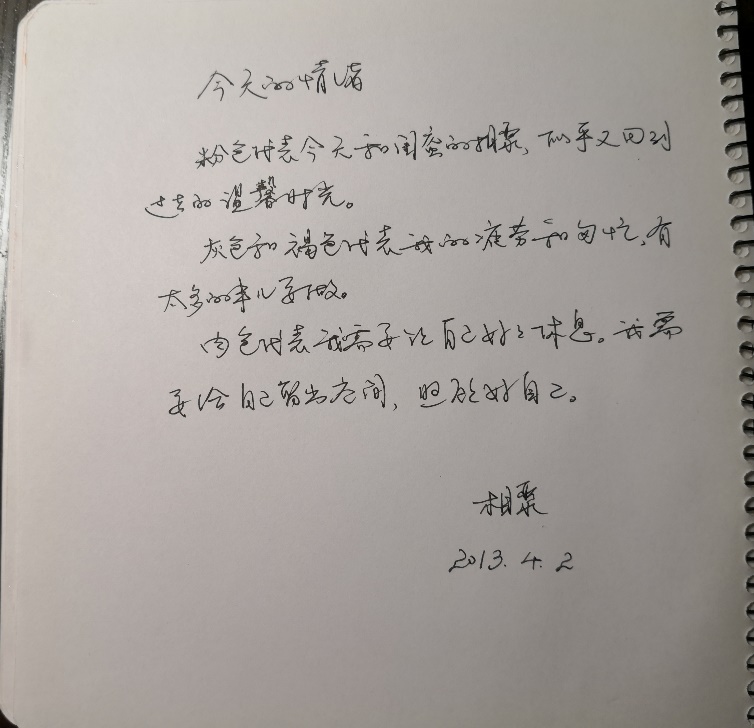 今天的情绪
粉色代表今天和闺蜜的相聚，似乎又回到
过去的温馨时光。
灰色和褐色代表我的疲劳和匆忙，有
太多的事儿要做。
肉色代表我需要让自己好好休息。我需
要给自己留出空间，照顾好自己。
相聚
2013.4.2